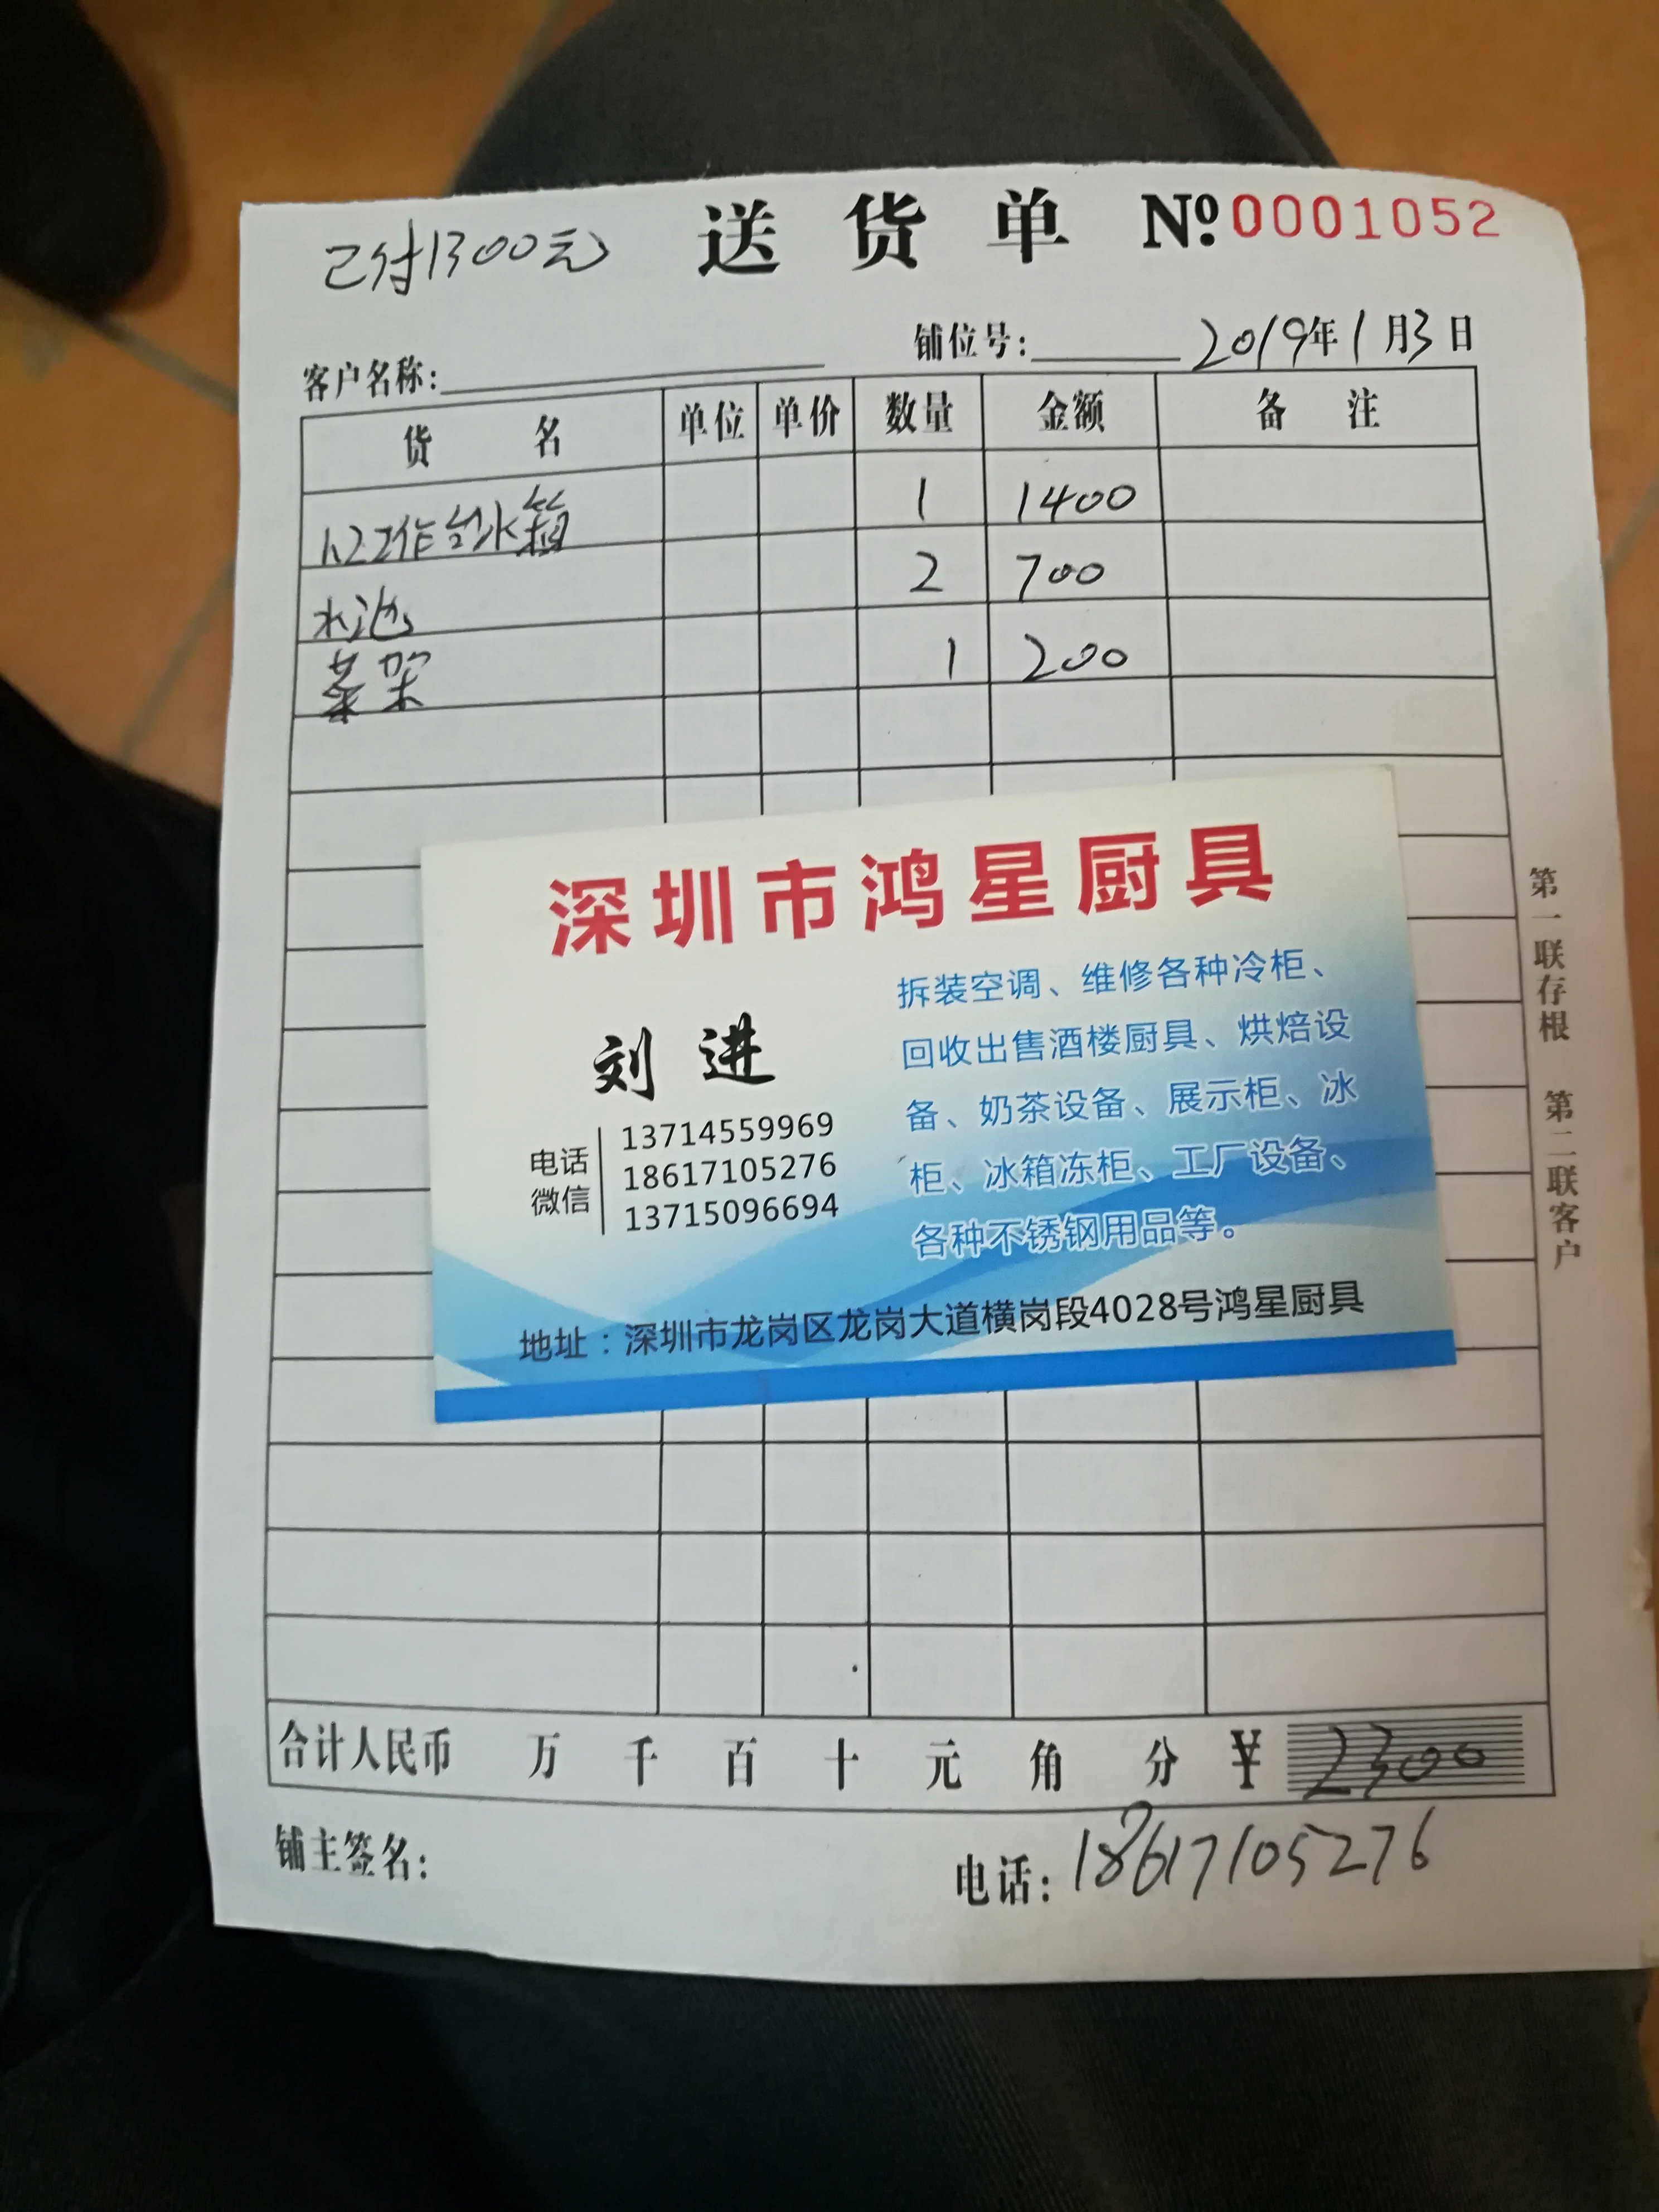 已付1300元
送货单 №:0001052
客户名称: 铺位号: 2019年1月3日
货名 单位 单价 数量 金额 备注
1.2工作台冰箱 1 1400
水池 2 700
菜架 1 200
深圳市鸿星厨具
刘进
电话
微信
13714559969
18617105276
13715096694
拆装空调、维修各种冷柜、
回收出售酒楼厨具、烘焙设
备、奶茶设备、展示柜、冰
柜、冰箱冻柜、工厂设备、
各种不锈钢用品等。
地址：深圳市龙岗区龙岗大道横岗段4028号鸿星厨具
第一联存根 第二联客户
合计人民币 万 千 百 十 元 角 分 ¥ 2300
铺主签名: 电话: 18617105276